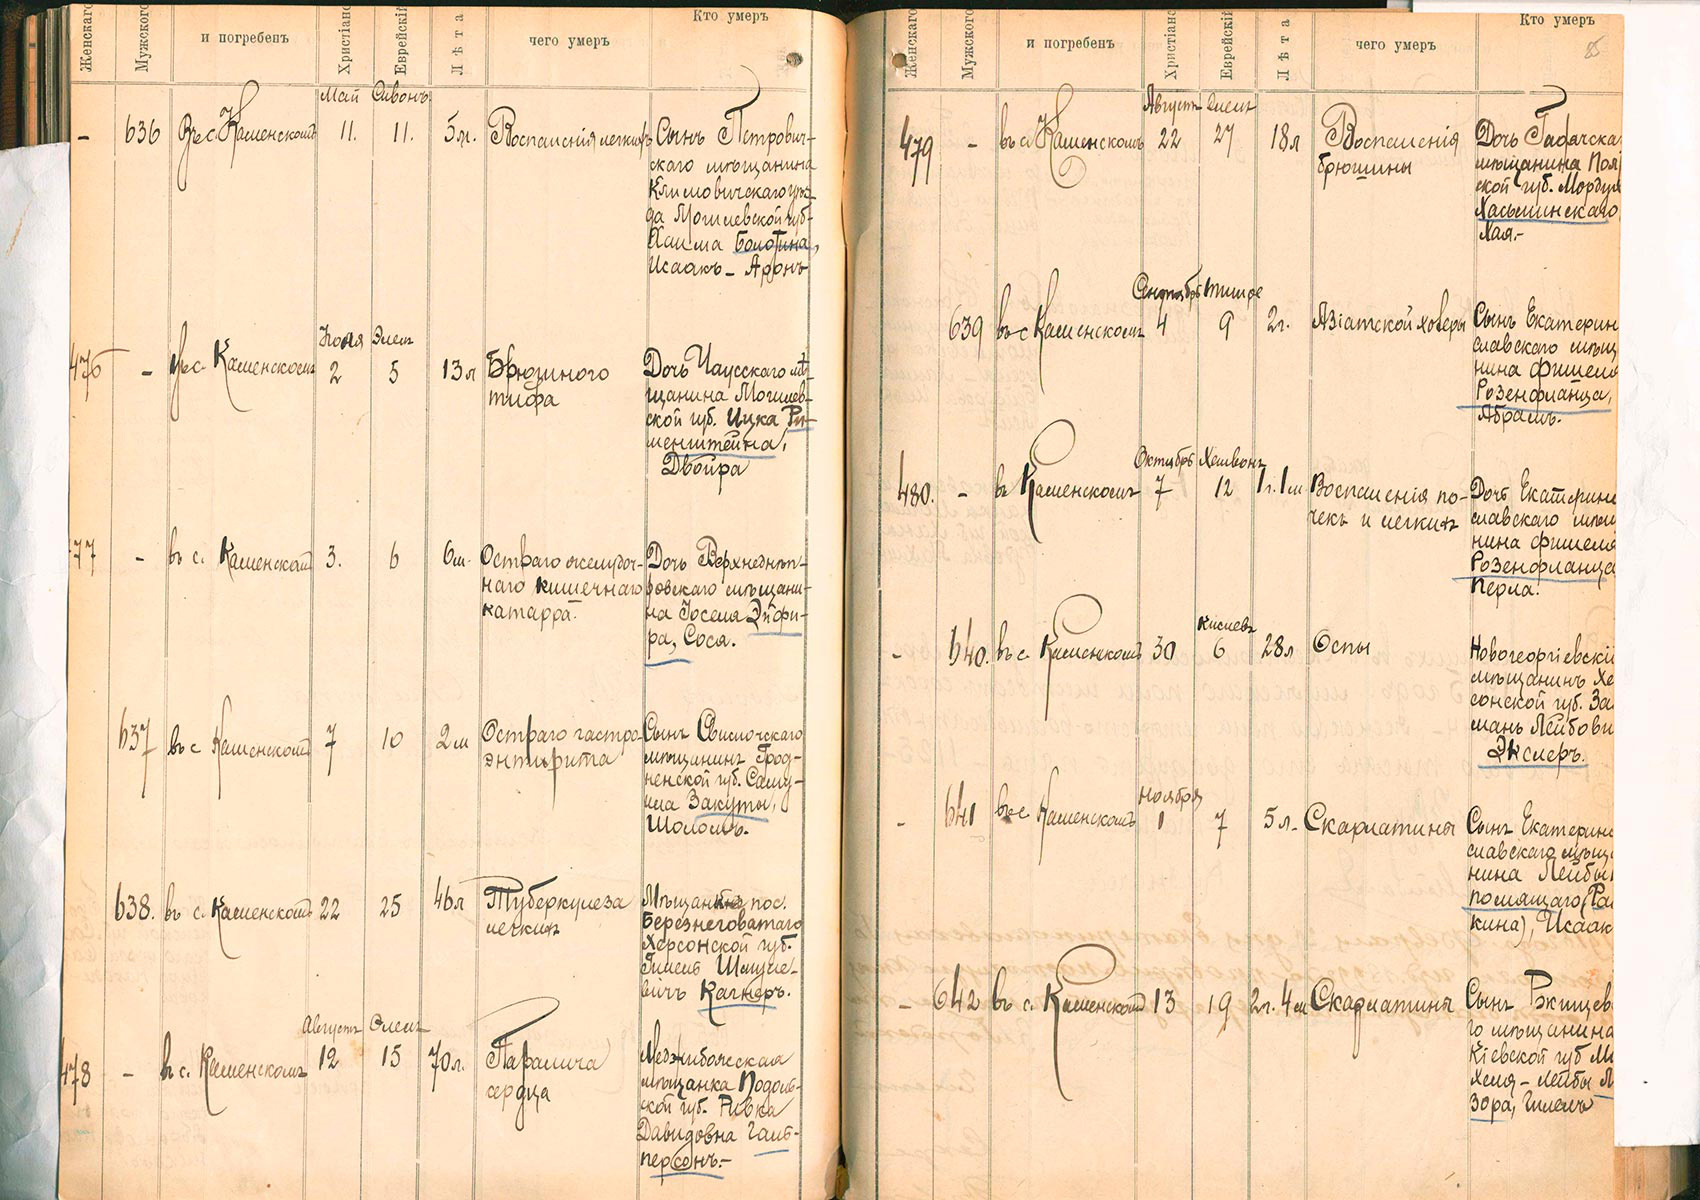 Женскаго Мужского и погребенъ Христіанс Еврейскій Лѣта чего умеръ Кто умеръ
Май Сивонъ
— 636 Въ с Каменскомъ 11. 11. 5м. Воспаленія легкихъ Сынъ Петрович-
скаго мѣщанина
Климовичскаго уѣз-
да Могилевской губ-
Хаима Болотина,
Исаакъ – Аронъ
Іюля Элелъ
476 — въ с. Каменскомъ 2 5 13л Брюшного Дочь Чаусскаго мѣ-
тифа щанина Могилев-
ской губ. Ицка Ри-
менштейна,
Двойра
477 — въ с. Каменскомъ 3. 6 6м. Остраго желудоч- Дочь Верхнеднѣп-
наго кишечнаго ровскаго мѣщани-
катарра. на Іоселя Эйфи-
ра, Сося.
637 въ с Каменскомъ 7 10 2м Остраго гастро- Сынъ Свислочскаго
энтерита мѣщанина Грод-
ненской губ. Саму-
ила Закуты,
Шоломъ.
638. въ с. Каменскомъ 22 25 46л Туберкулеза Мѣщанинъ пос.
легкихъ Березнеговатаго
Херсонской губ.
Гилель Шмуле-
вичъ Кагнеръ.
Августъ Элелъ
478 — въ с. Каменскомъ 12 15 70л. Паралича Меджибожская
сердца мѣщанка Подоль-
ской губ. Ривка
Давидовна Галь-
персонъ.–
Женскаго Мужского и погребенъ Христіанс Еврейскій Лѣта чего умеръ Кто умеръ
85
Августъ Элелъ
479 — въ с. Каменскомъ 22 27 18л Воспаленія Дочь Гадячска
брюшины мѣщанина Пол
ской губ. Мордух
Хасьминскаго
Хая.–
Сентябрь Тишре
639 въ с Каменскомъ 4 9 2г. Азіатской холеры Сынъ Екатерин
славскаго мѣщ
нина Фишеля
Розенфланца,
Абрамъ.
Октябрь Хешвонъ
480. — въ Каменскомъ 7 12 1г. 1м Воспаленія по- Дочь Екатерино
чекъ и легкихъ славскаго мѣщ
нина Фишеля
Розенфланца
Перла.
Кислевъ
- 640. въ с Каменскомъ 30 6 28л Оспы Новогеоргіевскі
мѣщанинъ Хе
сонской губ. За
манъ Лейбови
Экслеръ.
Ноября
- 641 въ с Каменскомъ 1 7 5л. Скарлатины Сынъ Екатерино
славскаго мѣща
нина Лейбы
помящаго (Ра
кина), Исаак
- 642 въ с. Каменскомъ 13 19 2г. 4м Скарлатины Сынъ Ржищев
го мѣщанина
Кіевской губ М
Хеля – Лейбы М
зора, Гилель